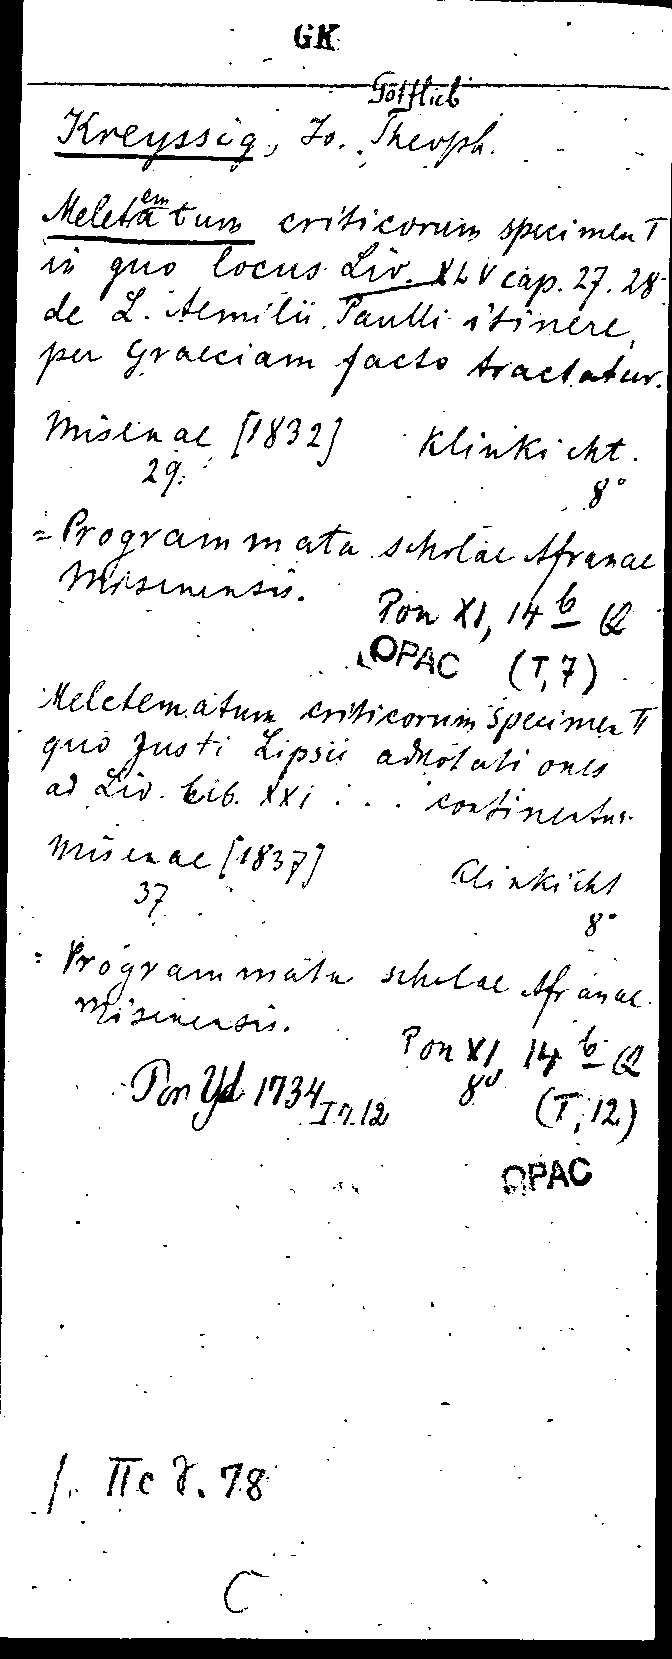 GK
Gottlieb
Kreyssig, Jo. Theoph.
em
Meletatum criticorum specimen I
in quo locus Liv. XLV cap. 27. 28
de L. Aemilii Paulli itinere
per Graeciam facto tractatur.
Misenae [1832] Klinkicht.
29.
8°
= Programmata scholae Afranae
Misenensis.
Pon XI, 14 b Q
OPAC (T, 7)
Meletematum criticorum Specimen II
quo Justi Lipsii adnotationes
ad Liv. lib. XXI . . . continentur
Misenae [1837] Klinkicht
37
8°
= Programmata scholae Afranae
Misenensis.
Pon XI, 14 b Q
8°
Pon Yd 1734 I n. 12
(T, 12)
OPAC
/. II c 8. 78
C